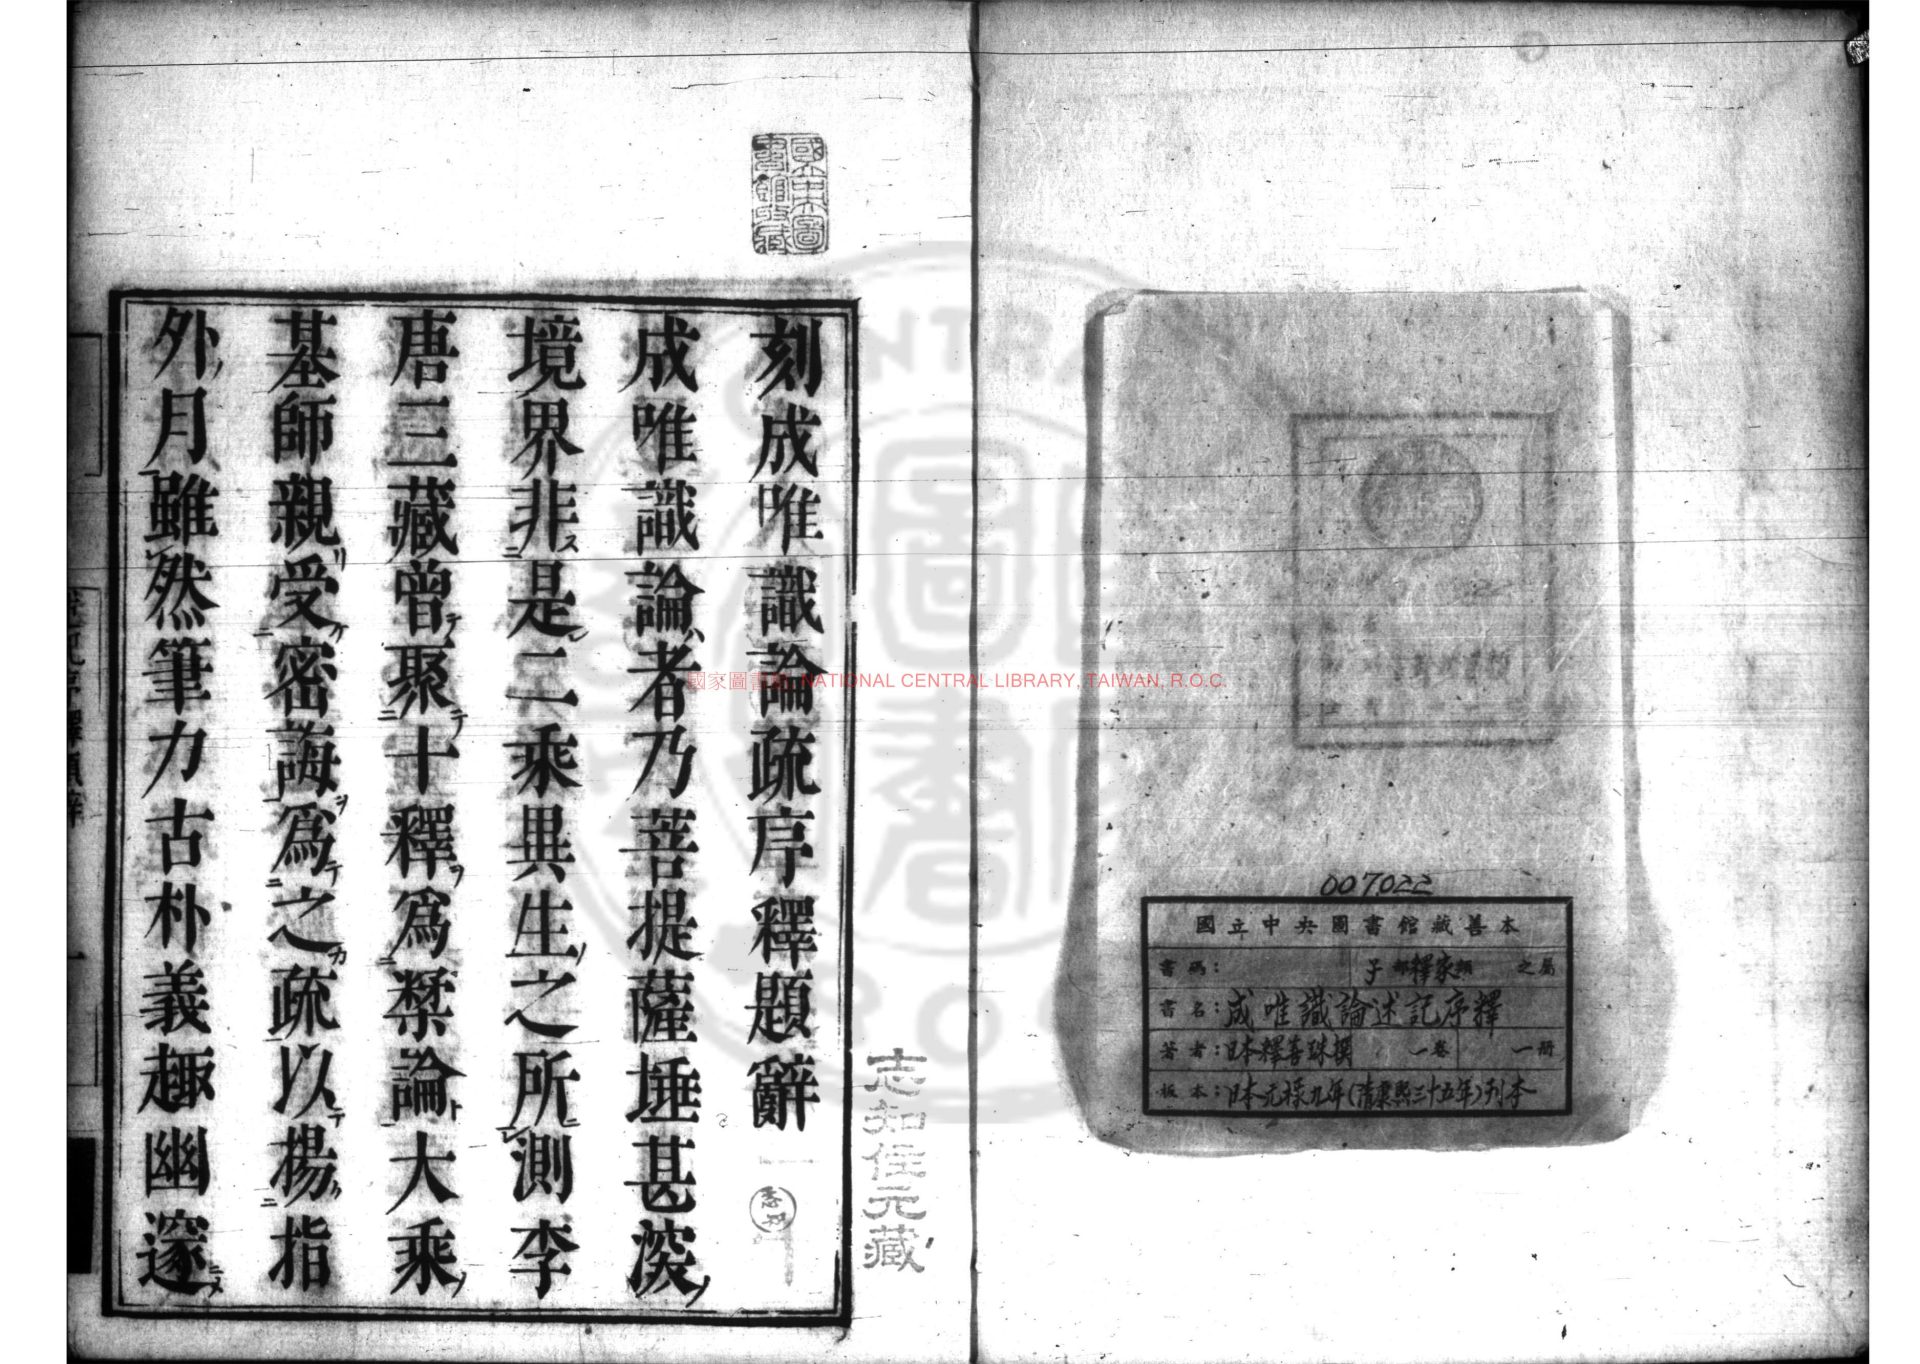 007022
國立中央圖書館藏善本
書碼： 子部釋家類之屬
書名：成唯識論述記序釋
著者：日本釋善珠撰 一卷 一冊
板本：日本元祿九年(清康熙三十五年)刊本
國家圖書館, NATIONAL CENTRAL LIBRARY, TAIWAN, R.O.C.
國立中央圖書館收藏
志知住元藏
刻成唯識論疏序釋題辭
成唯識論ハ者乃菩提薩埵甚深ノ
境界非ス是レ二乘異生ノ之所ニ測李
唐三藏曾テ聚テ十釋ヲ爲糅論ト大乘ノ
基師親リ受ケ密誨ヲ爲テ之カ疏以テ揚ク指
外ノ月雖然筆力古朴義趣幽邃ニス